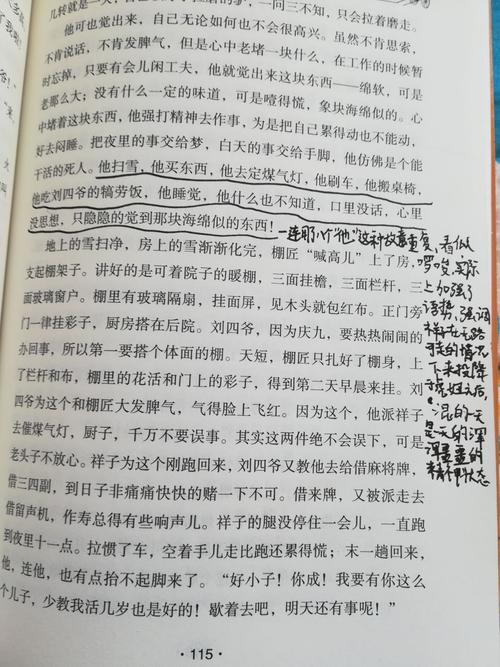 儿转就是一天
一问三不知,只会拉着磨走。
他可也觉出来,自己无论如何也不会很高兴。虽然不肯思索,
不肯说话,不肯发脾气,但是心中老堵一块什么,在工作的时候暂
时忘掉,只要有会儿闲工夫,他就觉出来这块东西——绵软,可是
老那么大;没有什么一定的味道,可是噎得慌,象块海绵似的。心
中堵着这块东西,他强打精神去作事,为是把自己累得动也不能动,
好去闷睡。把夜里的事交给梦,白天的事交给手脚,他仿佛是个能
干活的死人。他扫雪,他买东西,他去定煤气灯,他刷车,他搬桌椅,
他吃刘四爷的犒劳饭,他睡觉,他什么也不知道,口里没话,心里
没思想,只隐隐的觉到那块海绵似的东西!
地上的雪扫净,房上的雪渐渐化完,棚匠“喊高儿”上了房,
支起棚架子。讲好的是可着院子的暖棚,三面挂檐,三面栏杆,三
面玻璃窗户。棚里有玻璃隔扇,挂画屏,见木头就包红布。正门旁
门一律挂彩子,厨房搭在后院。刘四爷,因为庆九,要热热闹闹的
办回事,所以第一要搭个体面的棚。天短,棚匠只扎好了棚身,上
了栏杆和布,棚里的花活和门上的彩子,得到第二天早晨来挂。刘
四爷为这个和棚匠大发脾气,气得脸上飞红。因为这个,他派祥子
去催煤气灯,厨子,千万不要误事。其实这两件绝不会误下,可是
老头子不放心。祥子为这个刚跑回来,刘四爷又教他去给借麻将牌,
借三四副,到日子非痛痛快快的赌一下不可。借来牌,又被派走去
借留声机,作寿总得有些响声儿。祥子的腿没停住一会儿,一直跑
到夜里十一点。拉惯了车,空着手儿走比跑还累得慌;末一趟回来,
他,连他,也有点抬不起脚来了。“好小子!你成!我要有你这么
个儿子,少教我活几岁也是好的!歇着去吧,明天还有事呢!”
一连用了八个“他”这种故意重复,看似
啰嗦,实际
上加强了
语势,强调
祥子在走路
无
的情况
下来投降
虎妞之后,
混的一天
是一天的浑
浑噩噩的
精神状态
·115·